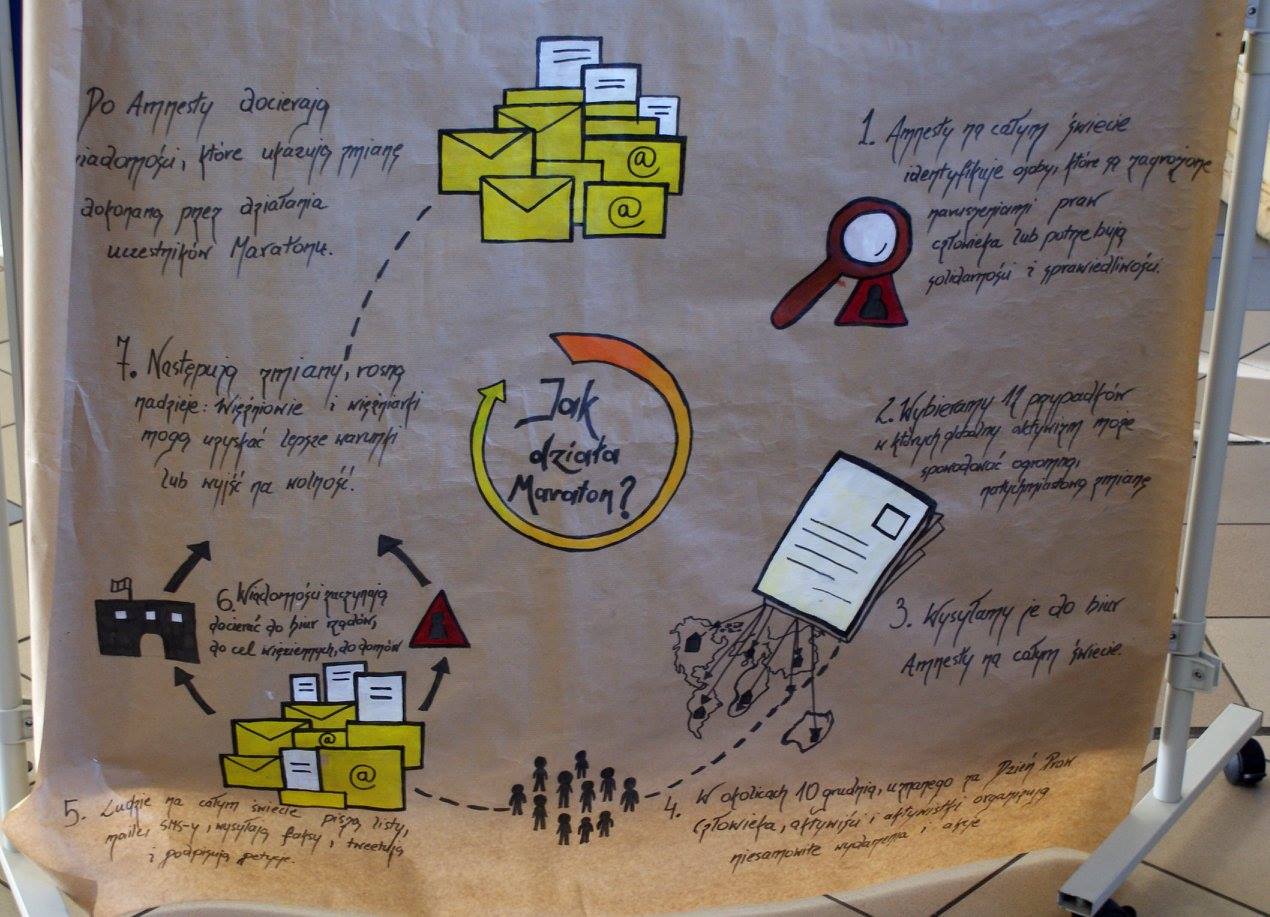 Jak
działa
Maraton?
1. Amnesty na całym świecie
identyfikuje osoby, które są zagrożone
naruszeniami praw
człowieka lub potrzebują
solidarności i sprawiedliwości.
2. Wybieramy 12 przypadków
w których globalny aktywizm może
spowodować ogromną,
natychmiastową zmianę
3. Wysyłamy je do biur
Amnesty na całym świecie.
4. W okolicach 10 grudnia, uznanego za Dzień Praw
Człowieka, aktywiści i aktywistki organizują
niesamowite wydarzenia i akcje
5. Ludzie na całym świecie piszą listy,
maile, SMS-y, wysyłają faksy, tweetują
i podpisują petycje.
6. Wiadomości zaczynają
docierać do biur rządów,
do cel więziennych, do domów
7. Następują zmiany, rosną
nadzieje: Więźniowie i więźniarki
mogą uzyskać lepsze warunki
lub wyjść na wolność.
Do Amnesty docierają
wiadomości, które ukazują zmianę
dokonaną przez działania
uczestników Maratonu.
@
@
@
@